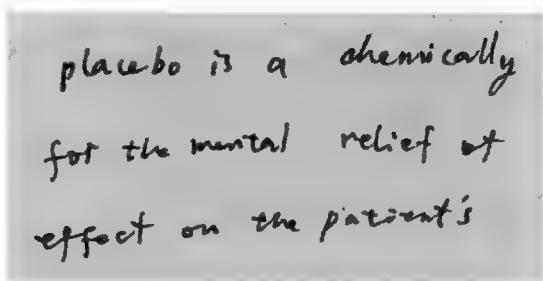 placebo is a chemically
for the mental relief of
effect on the patient's